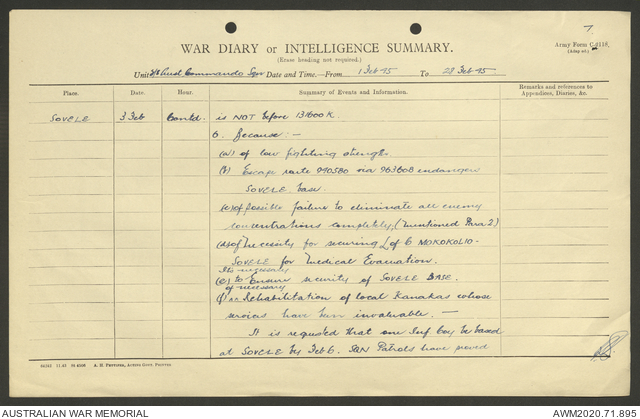 7
WAR DIARY or INTELLIGENCE SUMMARY.
(Erase heading not required.)
Army Form C.2118.
(Adap ed.)
Unit 2/8 Aust Commando Sqn Date and Time.—From 1 Feb 45 To 28 Feb 45.
Place. Date. Hour. Summary of Events and Information. Remarks and references to Appendices, Diaries, &c.
SOVELE 3 Feb Contd. is NOT before 131600K.
6. Because:—
(a) of low fighting strength
(b) Escape route 990580 via 963608 endangers
SOVELE base.
(c) of possible failure to eliminate all enemy
concentrations completely, (mentioned Para 2)
(d) of necessity for securing L of C MOROKOLIO-
SOVELE for Medical Evacuation.
It is necessary
(e) to Ensure security of SOVELE BASE.
of necessary
(f) Rehabilitation of local Kanakas whose
services have been invaluable.—
It is requested that one Inf Coy be based
at SOVELE by Feb 6. SQN Patrols have proved
A. H. Pettifer, Acting Govt. Printer
AUSTRALIAN WAR MEMORIAL
AWM2020.71.895